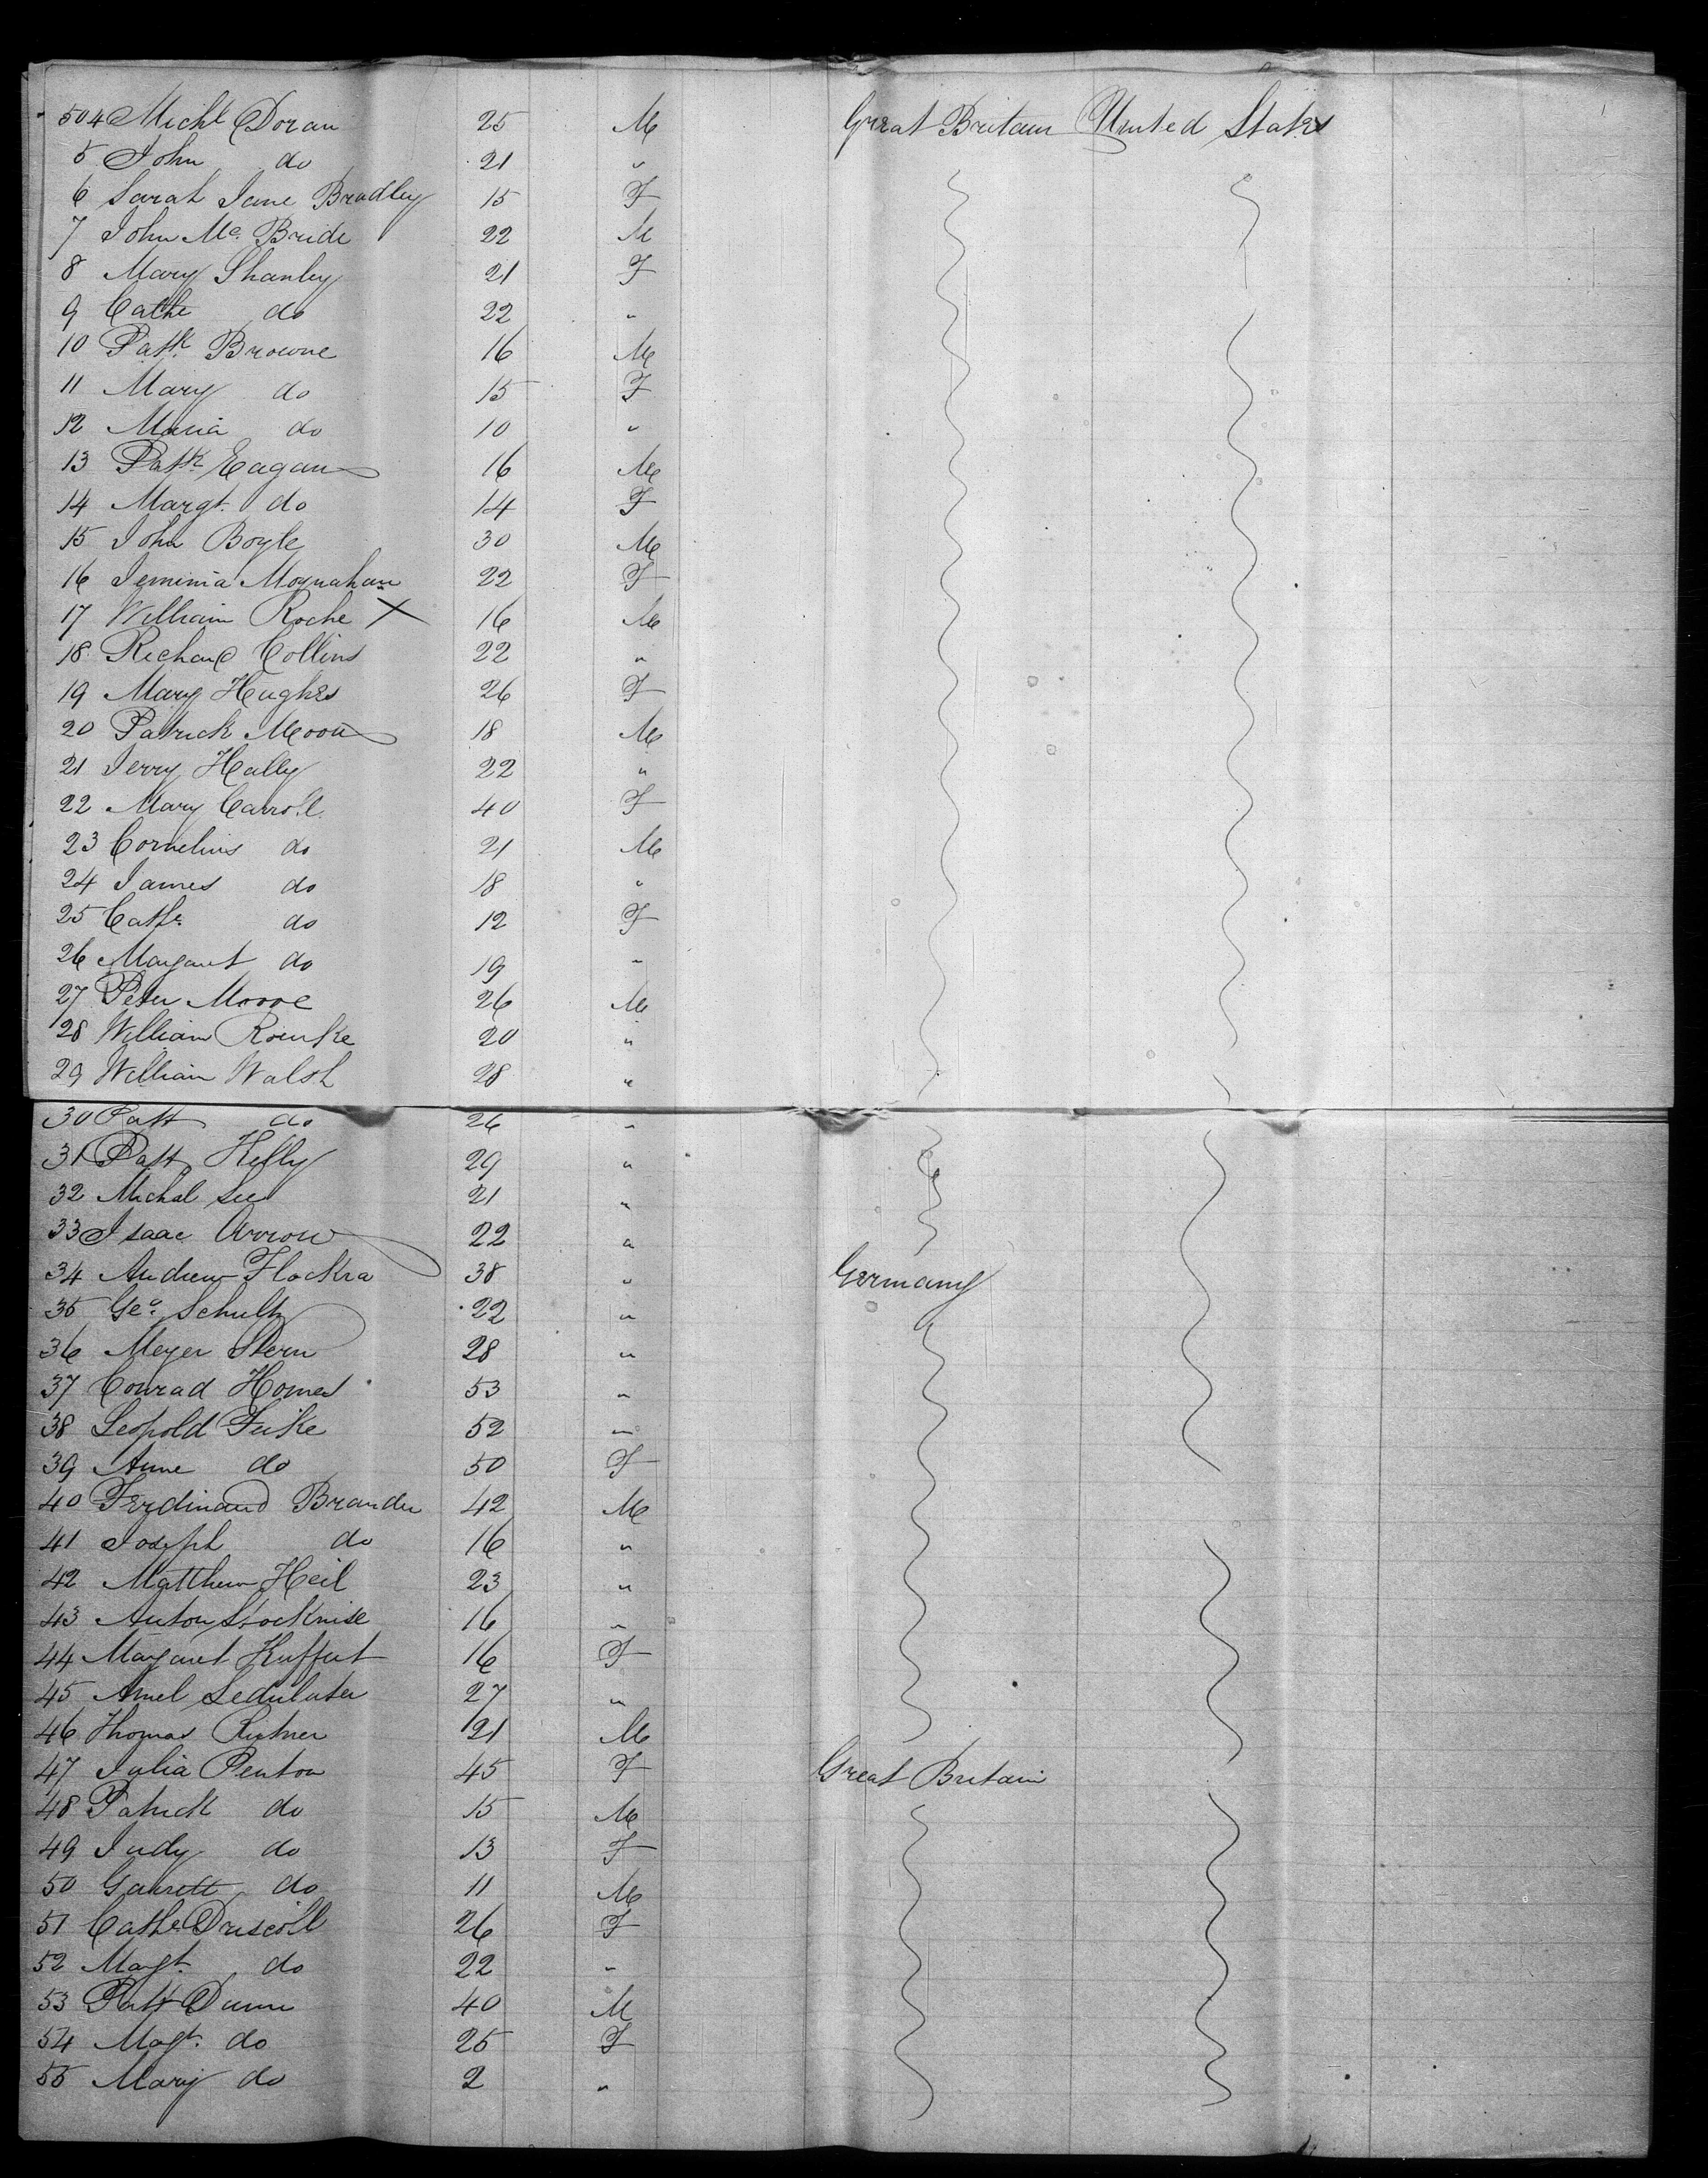 504 Michl Doran 25 M Great Britain United States
5 John do 21 "
6 Sarah Jane Bradley 15 F
7 John Mc Bride 22 M
8 Mary Shanley 21 F
9 Cathe do 22 "
10 Patk Browne 16 M
11 Mary do 15 F
12 Maria do 10 "
13 Patk Eagan 16 M
14 Margt do 14 F
15 John Boyle 30 M
16 Jemima Moynahan 22 F
17 William Roche X 16 M
18 Richard Collins 22 "
19 Mary Hughes 26 F
20 Patrick 18 M
21 Jerry Hally 22 "
22 Mary Carroll 40 F
23 Cornelius do 21 M
24 James do 18 "
25 Cathe do 12 F
26 Margaret do 19 "
27 Peter Moore 26 M
28 William Rourke 20 "
29 William Walsh 28 "
30 Patt do 26 "
31 Patt Kelly 29 "
32 Michal Lee 21 "
33 Isaac Arrow 22 "
34 Andrew Flockra 38 " Germany
35 Geo. Schultz 22 "
36 Meyer Stern 28 "
37 Conrad 53 "
38 Leopold 52 "
39 Anne do 50 F
40 Ferdinand Brander 42 M
41 Joseph do 16 "
42 Matthew Heil 23 "
43 Anton 16 "
44 Margaret 16 F
45 27 "
46 Thomas 21 M
47 Julia Penton 45 F Great Britain
48 Patrick do 15 M
49 Judy do 13 F
50 Garrett do 11 M
51 Cathe Driscoll 26 F
52 Margt do 22 "
53 Patt Dunn 40 M
54 Magt. do 25 F
55 Mary do 2 "